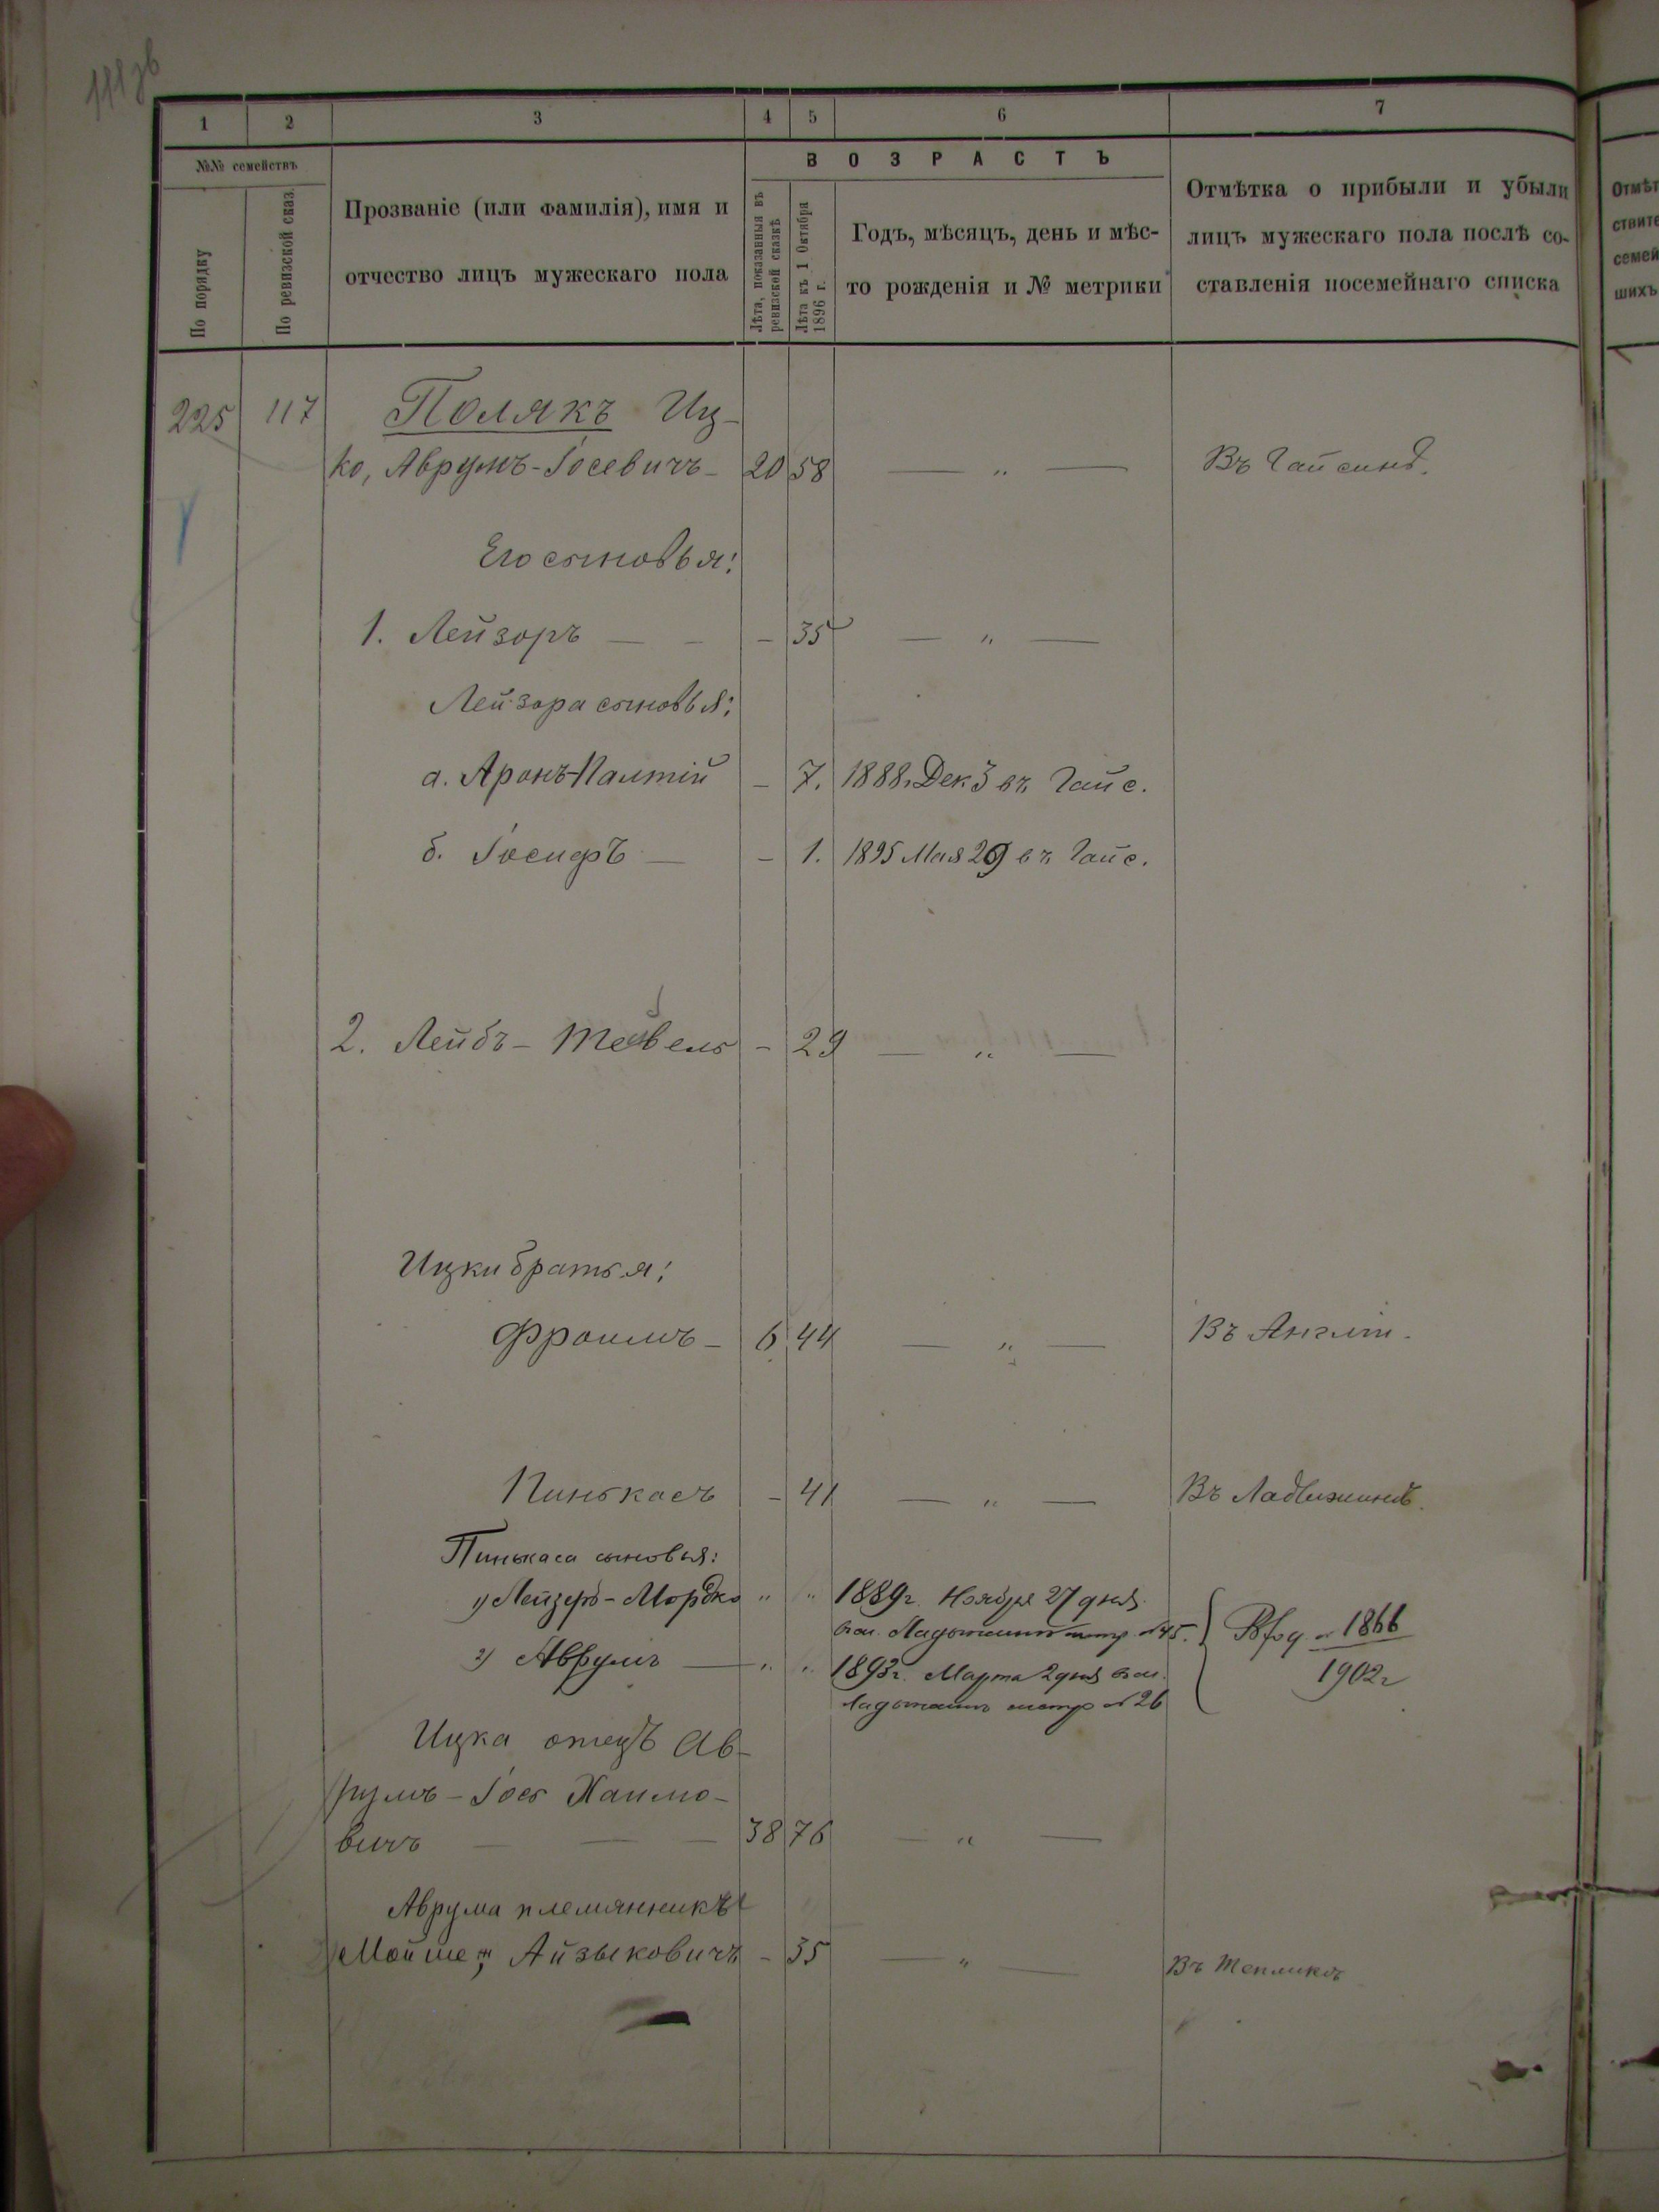 111зв
1 2 3 4 5 6 7
№№ семействъ
По порядку
По ревизской сказ.
Прозваніе (или фамилія), имя и
отчество лицъ мужескаго пола
ВОЗРАСТЪ
Лѣта, показанныя въ
ревизской сказкѣ
Лѣта къ 1 Октября
1896 г.
Годъ, мѣсяцъ, день и мѣс-
то рожденія и № метрики
Отмѣтка о прибыли и убыли
лицъ мужескаго пола послѣ со-
ставленія посемейнаго списка
225 117 Полякъ Иц-
ко, Аврумъ-Іосевичъ - 20 58 — „ — Въ Гайсинѣ.
Его сыновья:
1. Лейзоръ — - - 35 — „ —
Лейзора сыновья:
а. Аронъ-Палтій - 7. 1888. Дек 3 въ Гайс.
б. Іосифъ — - 1. 1895 Мая 29 въ Гайс.
2. Лейбъ - Тевель - 29 — „ —
Ицки братья:
Фроимъ - 6 44 — „ — Въ Англіи.
Пинькасъ - 41 — „ — Въ Ладыжинѣ.
Пинькаса сыновья:
1) Лейзеръ-Мордко „ „ 1889г. Ноября 27 дня.
въ м. Ладыжинѣ метр. №45.
2) Аврумъ — „ „ 1893г. Марта 2 дня въ м.
Ладыжинѣ метр №26
№ 1866
1902г
Ицка отецъ Ав-
румъ-Іось Хаимо-
вичъ — — — 38 76 — „ —
Аврума племянникъ
Мойше, Айзыковичъ - 35 — „ — Въ Тепликѣ
Отмѣт
ствите
семей
шихъ